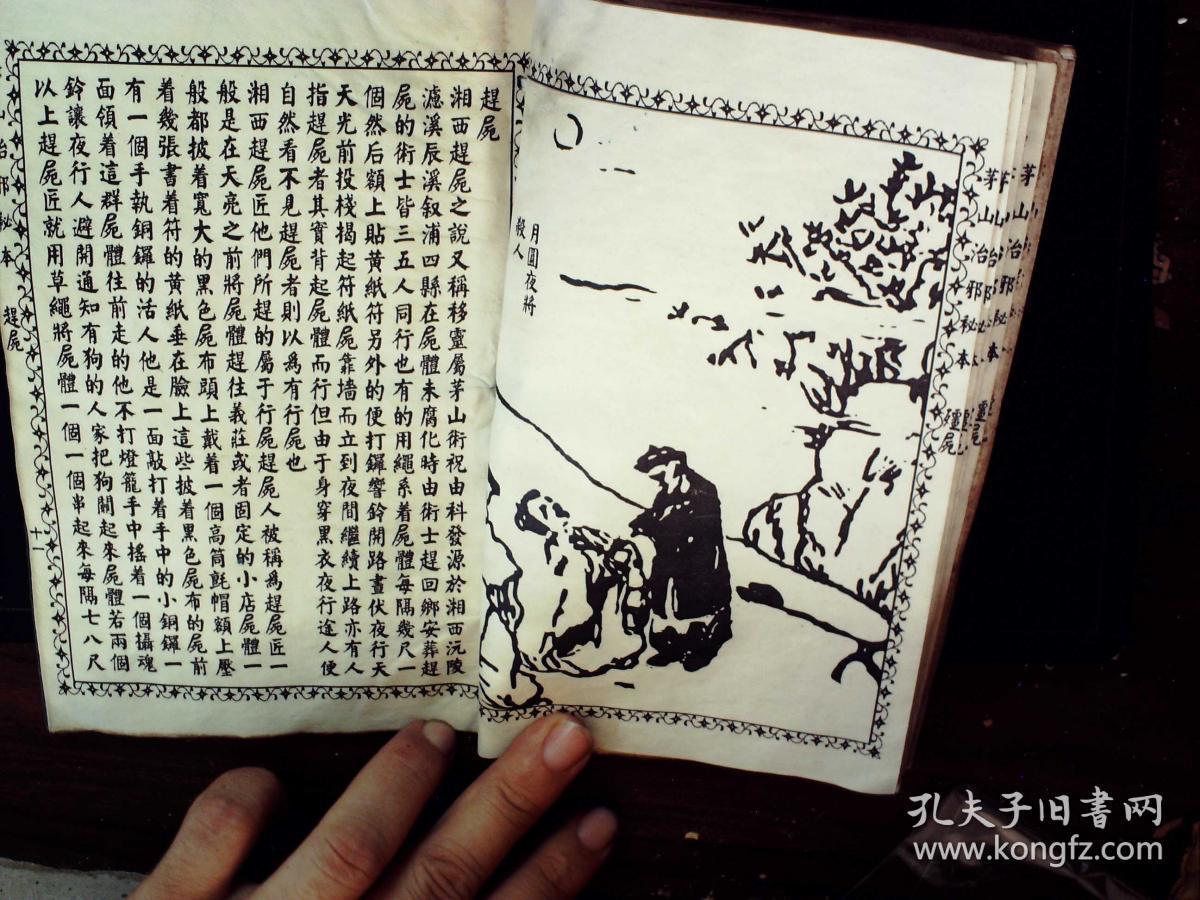 茅山治邪秘本
殭屍
月圓夜將
殺人
趕屍
湘西趕屍之說又稱移靈屬茅山術祝由科發源於湘西沅陵
瀘溪辰溪叙浦四縣在屍體未腐化時由術士趕回鄉安葬趕
屍的術士皆三五人同行也有的用繩系着屍體每隔幾尺一
個然后額上貼黄紙符另外的便打鑼響鈴開路晝伏夜行天
天光前投棧揭起符紙屍靠墙而立到夜間繼續上路亦有人
指趕屍者其實背起屍體而行但由于身穿黑衣夜行途人便
自然看不見趕屍者則以爲有行屍也
湘西趕屍匠他們所趕的屬于行屍趕屍人被稱爲趕屍匠一
般是在天亮之前將屍體趕往義莊或者固定的小店屍體一
般都披着寬大的黑色屍布頭上戴着一個高筒氈帽額上壓
着幾張書着符的黄紙垂在臉上這些披着黑色屍布的屍前
有一個手執銅鑼的活人他是一面敲打着手中的小銅鑼一
面領着這群屍體往前走的他不打燈籠手中摇着一個攝魂
鈴讓夜行人避開通知有狗的人家把狗關起來屍體若兩個
以上趕屍匠就用草繩將屍體一個一個串起來每隔七八尺
山治邪秘本
趕屍
十一
孔夫子旧書网
www.kongfz.com